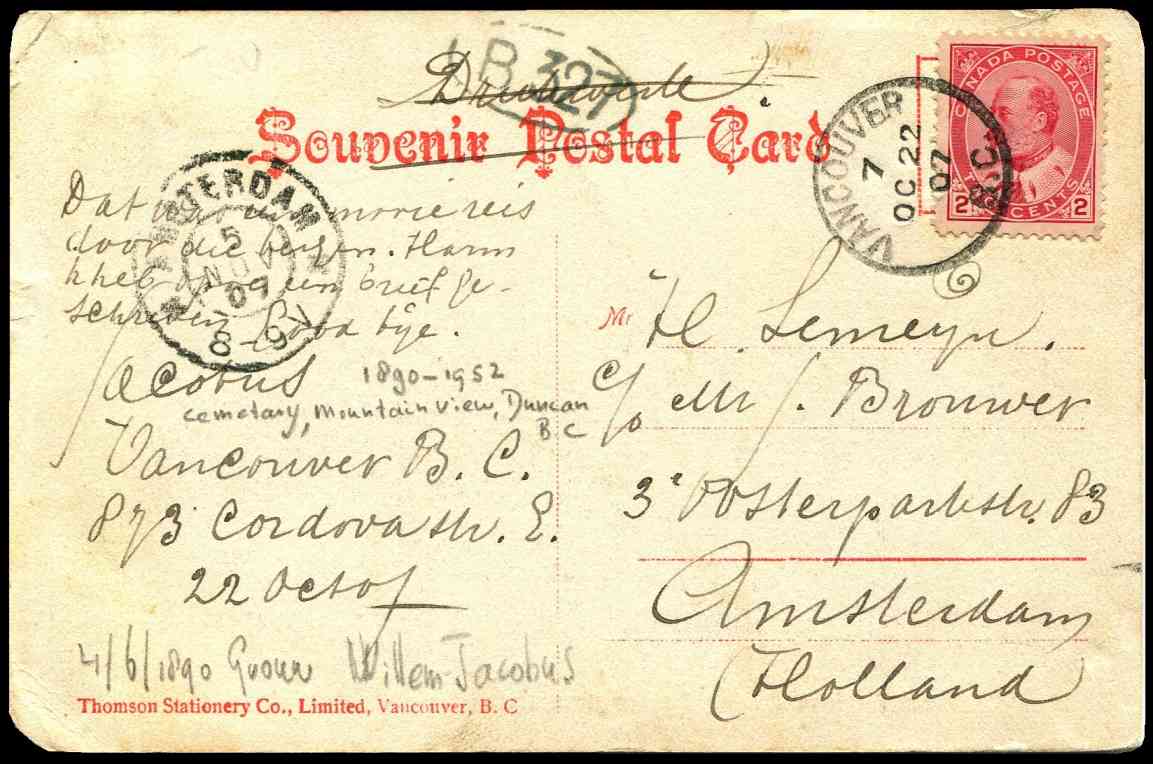 B.327
Drukwerk
Souvenir Postal Card
CANADA POSTAGE
2 CENTS 2
VANCOUVER
7
OC 22
07
B.C.
AMSTERDAM
5
NOV
07
8-9V
Dat was een mooie reis
door die bergen. Harm
k heb een brief ge-
schreven Good bye.
Jacobus
1890-1952
cemetary, Mountain View, Duncan
BC
Vancouver B. C.
873 Cordovastr. E.
22 Octof
Mr H. Lemeyn.
c/o Mr J. Brouwer
3e Oosterparkstr. 83
Amsterdam
(Holland)
4/6/1890 Willem Jacobus
Thomson Stationery Co., Limited, Vancouver, B. C